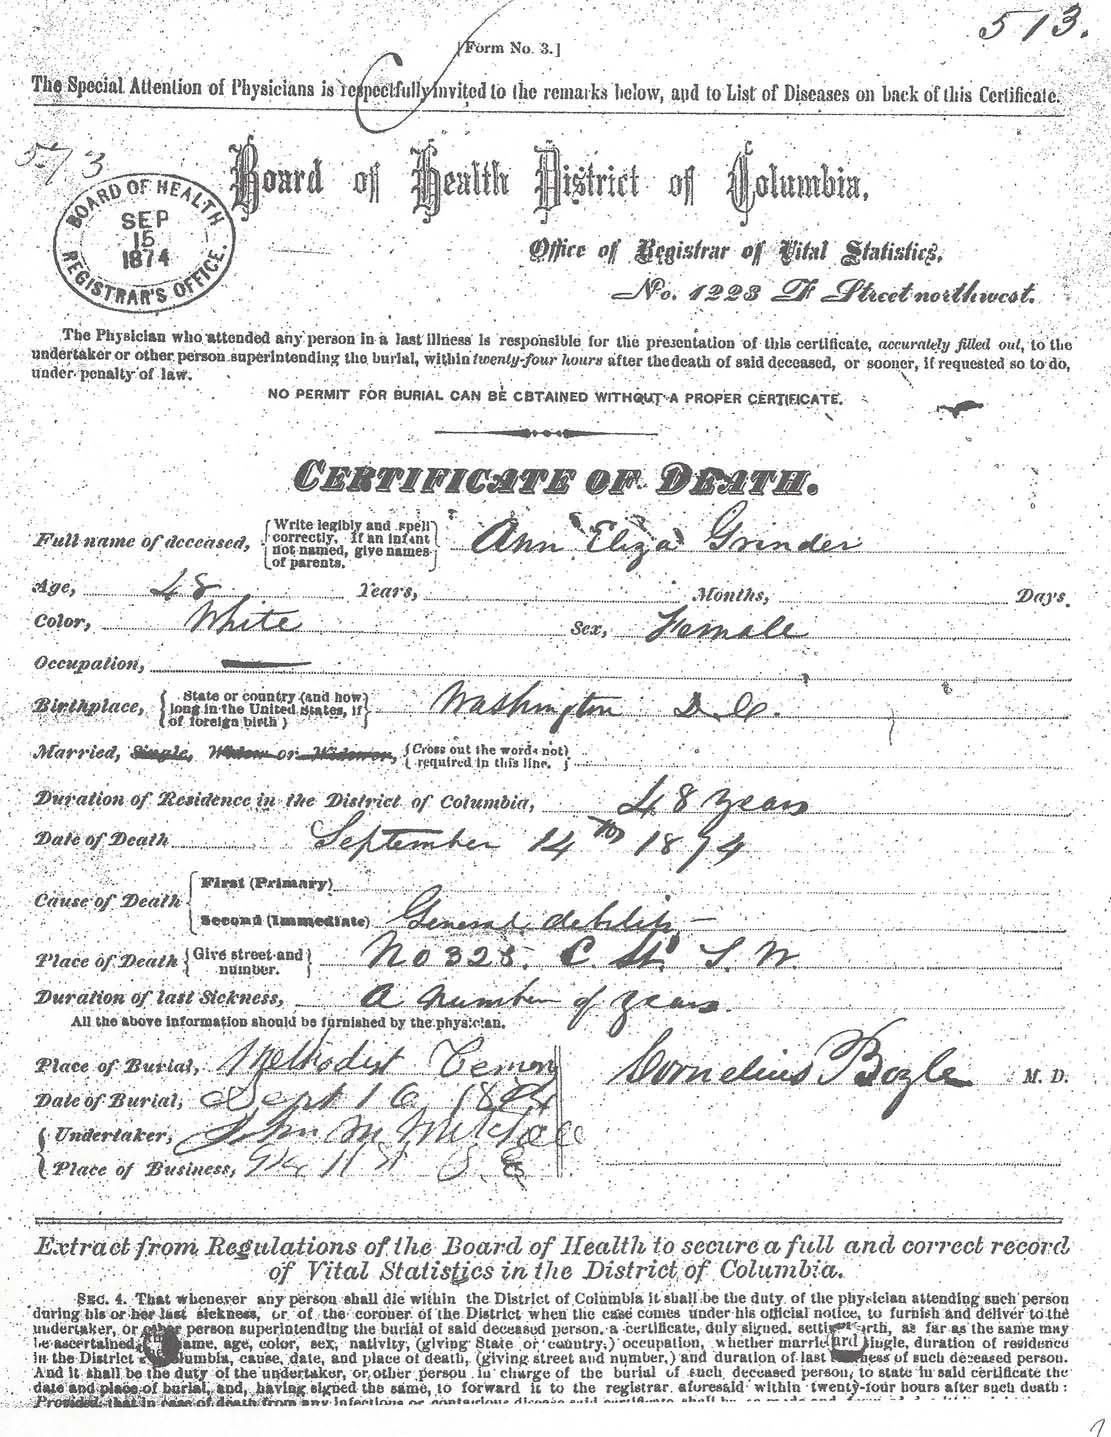 513.
[Form No. 3.]
The Special Attention of Physicians is respectfully invited to the remarks below, and to List of Diseases on back of this Certificate.
573
BOARD OF HEALTH
SEP
15
1874
REGISTRAR'S OFFICE.
Board of Health District of Columbia,
Office of Registrar of Vital Statistics,
No. 1223 F Street northwest.
The Physician who attended any person in a last illness is responsible for the presentation of this certificate, accurately filled out, to the
undertaker or other person superintending the burial, within twenty-four hours after the death of said deceased, or sooner, if requested so to do,
under penalty of law.
NO PERMIT FOR BURIAL CAN BE OBTAINED WITHOUT A PROPER CERTIFICATE.
CERTIFICATE OF DEATH.
Full name of deceased, {Write legibly and spell correctly. If an infant not named, give names of parents.} Ann Eliza Grinder
Age, 48 Years, Months, Days.
Color, White Sex, Female
Occupation,
Birthplace, {State or country (and how long in the United States, if of foreign birth)} Washington D.C.
Married, Single, Widow or Widower, {Cross out the words not required in this line.}
Duration of Residence in the District of Columbia, 48 years
Date of Death September 14th 1874
Cause of Death {First (Primary)
Second (Immediate) General debility
Place of Death {Give street and number.} No 325. C. St. S. W.
Duration of last Sickness, a number of years.
All the above information should be furnished by the physician.
Place of Burial, Methodist Cemery
Cornelius Boyle M. D.
Date of Burial, Sept 16 1874
{Undertaker, John M Mitchell
{Place of Business, 11 St S. E
Extract from Regulations of the Board of Health to secure a full and correct record
of Vital Statistics in the District of Columbia.
SEC. 4. That whenever any person shall die within the District of Columbia it shall be the duty of the physician attending such person
during his or her last sickness, or of the coroner of the District when the case comes under his official notice, to furnish and deliver to the
undertaker, or other person superintending the burial of said deceased person, a certificate, duly signed, setting forth, as far as the same may
be ascertained, the name, age, color, sex, nativity, (giving State or country,) occupation, whether married or single, duration of residence
in the District of Columbia, cause, date, and place of death, (giving street and number,) and duration of last sickness of such deceased person.
And it shall be the duty of the undertaker, or other person in charge of the burial of such deceased person, to state in said certificate the
date and place of burial, and, having signed the same, to forward it to the registrar aforesaid within twenty-four hours after such death:
Provided, that in case of death from any infectious or contagious disease said certificate shall be